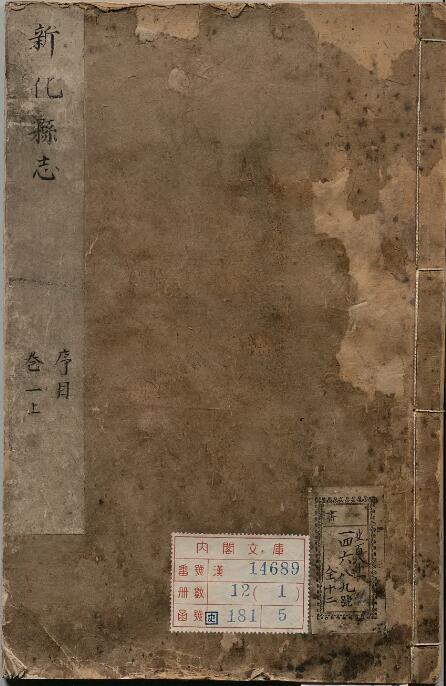 新化縣志
序目
卷一上
內閣文庫
番號 漢 14689
冊數 12(1)
函號 史 181 5
一四六八九號
全十二